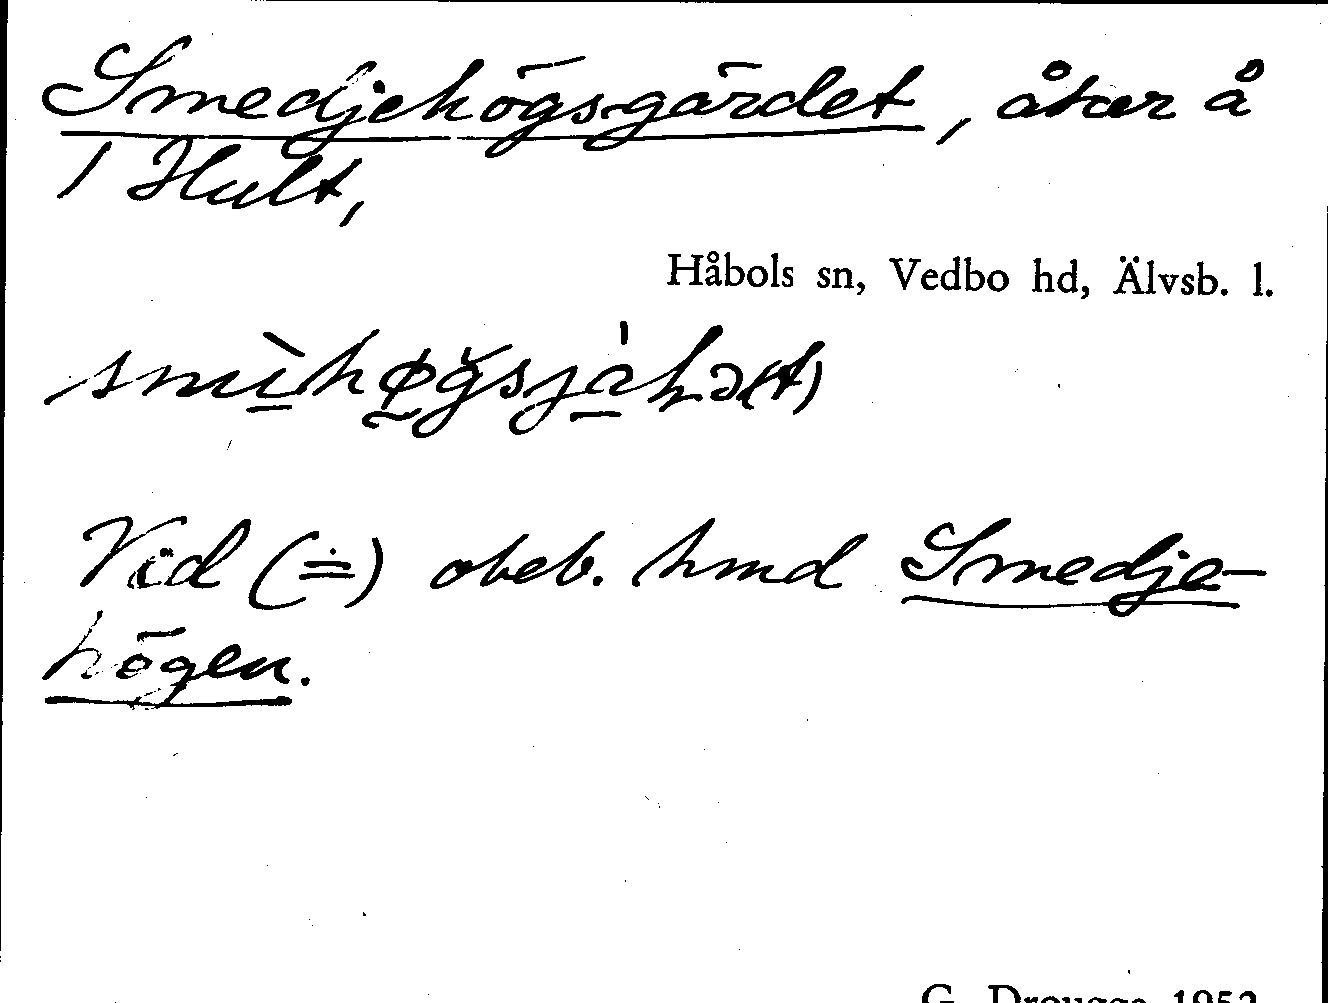 Smedjehögsgärdet, åker å
1 Hult,
Håbols sn, Vedbo hd, Älvsb. l.
Vid (≐) obeb. hmd Smedje-
högen.
G. Drougge 1952